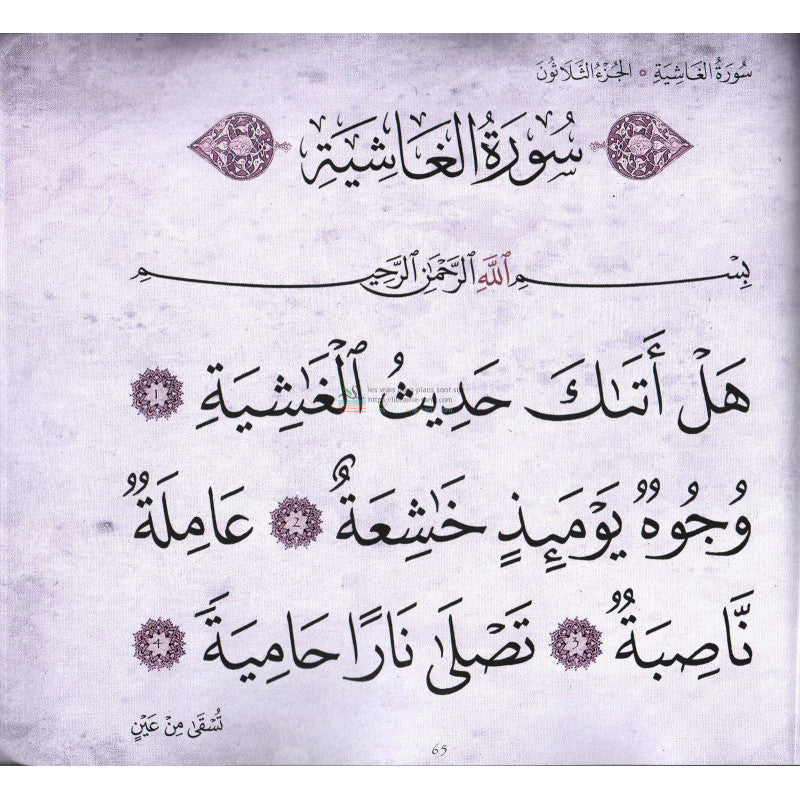 سُورَةُ الغَاشِيَةِ • الجُزْءُ الثَّلَاثُونَ
سُورَةُ الغَاشِيَةِ
بِسْمِ ٱللَّهِ ٱلرَّحْمَٰنِ ٱلرَّحِيمِ
هَلْ أَتَىٰكَ حَدِيثُ ٱلْغَٰشِيَةِ ١
وُجُوهٌ يَوْمَئِذٍ خَٰشِعَةٌ 2 عَامِلَةٌ
نَّاصِبَةٌ 3 تَصْلَىٰ نَارًا حَامِيَةً 4
تُسْقَىٰ مِنْ عَيْنٍ
65